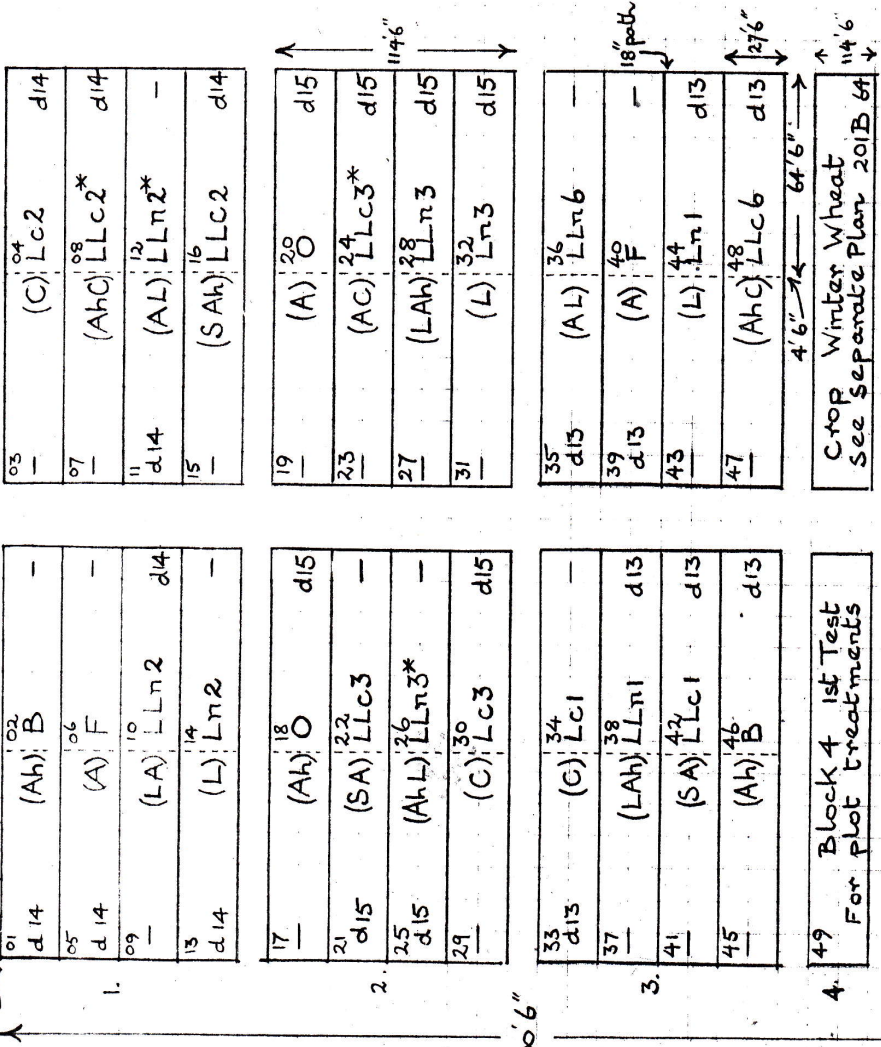 01 (Ah) 02 B
d 14 —
03 (C) 04 Lc2 d14
—
05 (A) 06 F
d 14 —
07 (AhC) 08 LLc2* d14
—
09 (LA) 10 LLn2 d14
—
11 (AL) 12 LLn2* —
d 14
13 (L) 14 Ln2
d 14 —
15 (SAh) 16 LLc2 d14
—
1.
17 (Ah) 18 O d15
—
19 (A) 20 O d15
—
21 (SA) 22 LLc3 —
d15
23 (AC) 24 LLc3* d15
—
25 (AhL) 26 LLn3* —
d15
27 (LAh) 28 LLn3 d15
—
29 (C) 30 Lc3 d15
—
31 (L) 32 Ln3 d15
—
2.
114'6"
33 (C) 34 Lc1 —
d13
35 (AL) 36 LLn6 —
d13
37 (LAh) 38 LLn1 d13
—
39 (A) 40 F —
d13
41 (SA) 42 LLc1 d13
—
43 (L) 44 Ln1 d13
—
45 (Ah) 46 B d13
—
47 (AhC) 48 LLc6 d13
—
3.
18" path
27'6"
4'6" 64'6"
0'6"
4.
49 Block 4 1st Test
For plot treatments
Crop Winter Wheat
see separate Plan 201B 64
114'6"